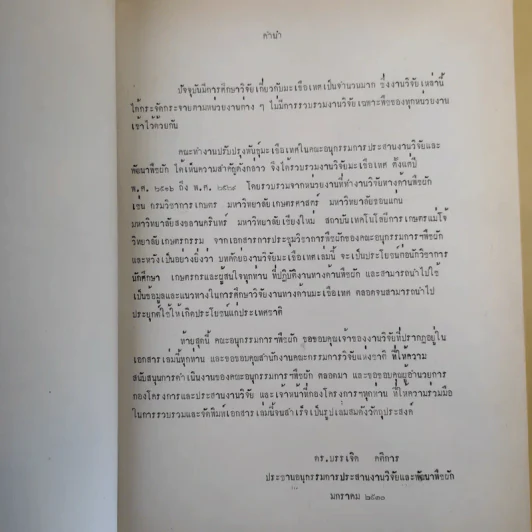 คำนำ
ปัจจุบันมีการศึกษาวิจัยเกี่ยวกับมะเขือเทศเป็นจำนวนมาก ซึ่งงานวิจัยเหล่านี้
ได้กระจัดกระจายตามหน่วยงานต่าง ๆ ไม่มีการรวบรวมงานวิจัยเฉพาะพืชของทุกหน่วยงาน
เข้าไว้ด้วยกัน
คณะทำงานปรับปรุงพันธุ์มะเขือเทศในคณะอนุกรรมการประสานงานวิจัยและ
พัฒนาพืชผัก ได้เห็นความสำคัญดังกล่าว จึงได้รวบรวมงานวิจัยมะเขือเทศ ตั้งแต่ปี
พ.ศ. ถึง พ.ศ. โดยรวบรวมจากหน่วยงานที่ทำงานวิจัยทางด้านพืชผัก
เช่น กรมวิชาการเกษตร มหาวิทยาลัยเกษตรศาสตร์ มหาวิทยาลัยขอนแก่น
มหาวิทยาลัยสงขลานครินทร์ มหาวิทยาลัยเชียงใหม่ สถาบันเทคโนโลยีการเกษตรแม่โจ้
วิทยาลัยเกษตรกรรม จากเอกสารการประชุมวิชาการพืชผักของคณะอนุกรรมการฯพืชผัก
และหวังเป็นอย่างยิ่งว่า บทคัดย่องานวิจัยมะเขือเทศเล่มนี้ จะเป็นประโยชน์ต่อนักวิชาการ
นักศึกษา เกษตรกรและผู้สนใจทุกท่าน ที่ปฏิบัติงานทางด้านพืชผัก และสามารถนำไปใช้
เป็นข้อมูลและแนวทางในการศึกษาวิจัยงานทางด้านมะเขือเทศ ตลอดจนสามารถนำไป
ประยุกต์ใช้ให้เกิดประโยชน์แก่ประเทศชาติ
ท้ายสุดนี้ คณะอนุกรรมการฯพืชผัก ขอขอบคุณเจ้าของงานวิจัยที่ปรากฏอยู่ใน
เอกสารเล่มนี้ทุกท่าน และขอขอบคุณสำนักงานคณะกรรมการวิจัยแห่งชาติ ที่ให้ความ
สนับสนุนการดำเนินงานของคณะอนุกรรมการฯพืชผัก ตลอดมา และขอขอบคุณผู้อำนวยการ
กองโครงการและประสานงานวิจัย และเจ้าหน้าที่กองโครงการฯทุกท่าน ที่ให้ความร่วมมือ
ในการรวบรวมและจัดพิมพ์เอกสารเล่มนี้จนสำเร็จเป็นรูปเล่มสมดังวัตถุประสงค์
ดร.บรรเจิด คติการ
ประธานอนุกรรมการประสานงานวิจัยและพัฒนาพืชผัก
มกราคม ๒๕๓๐